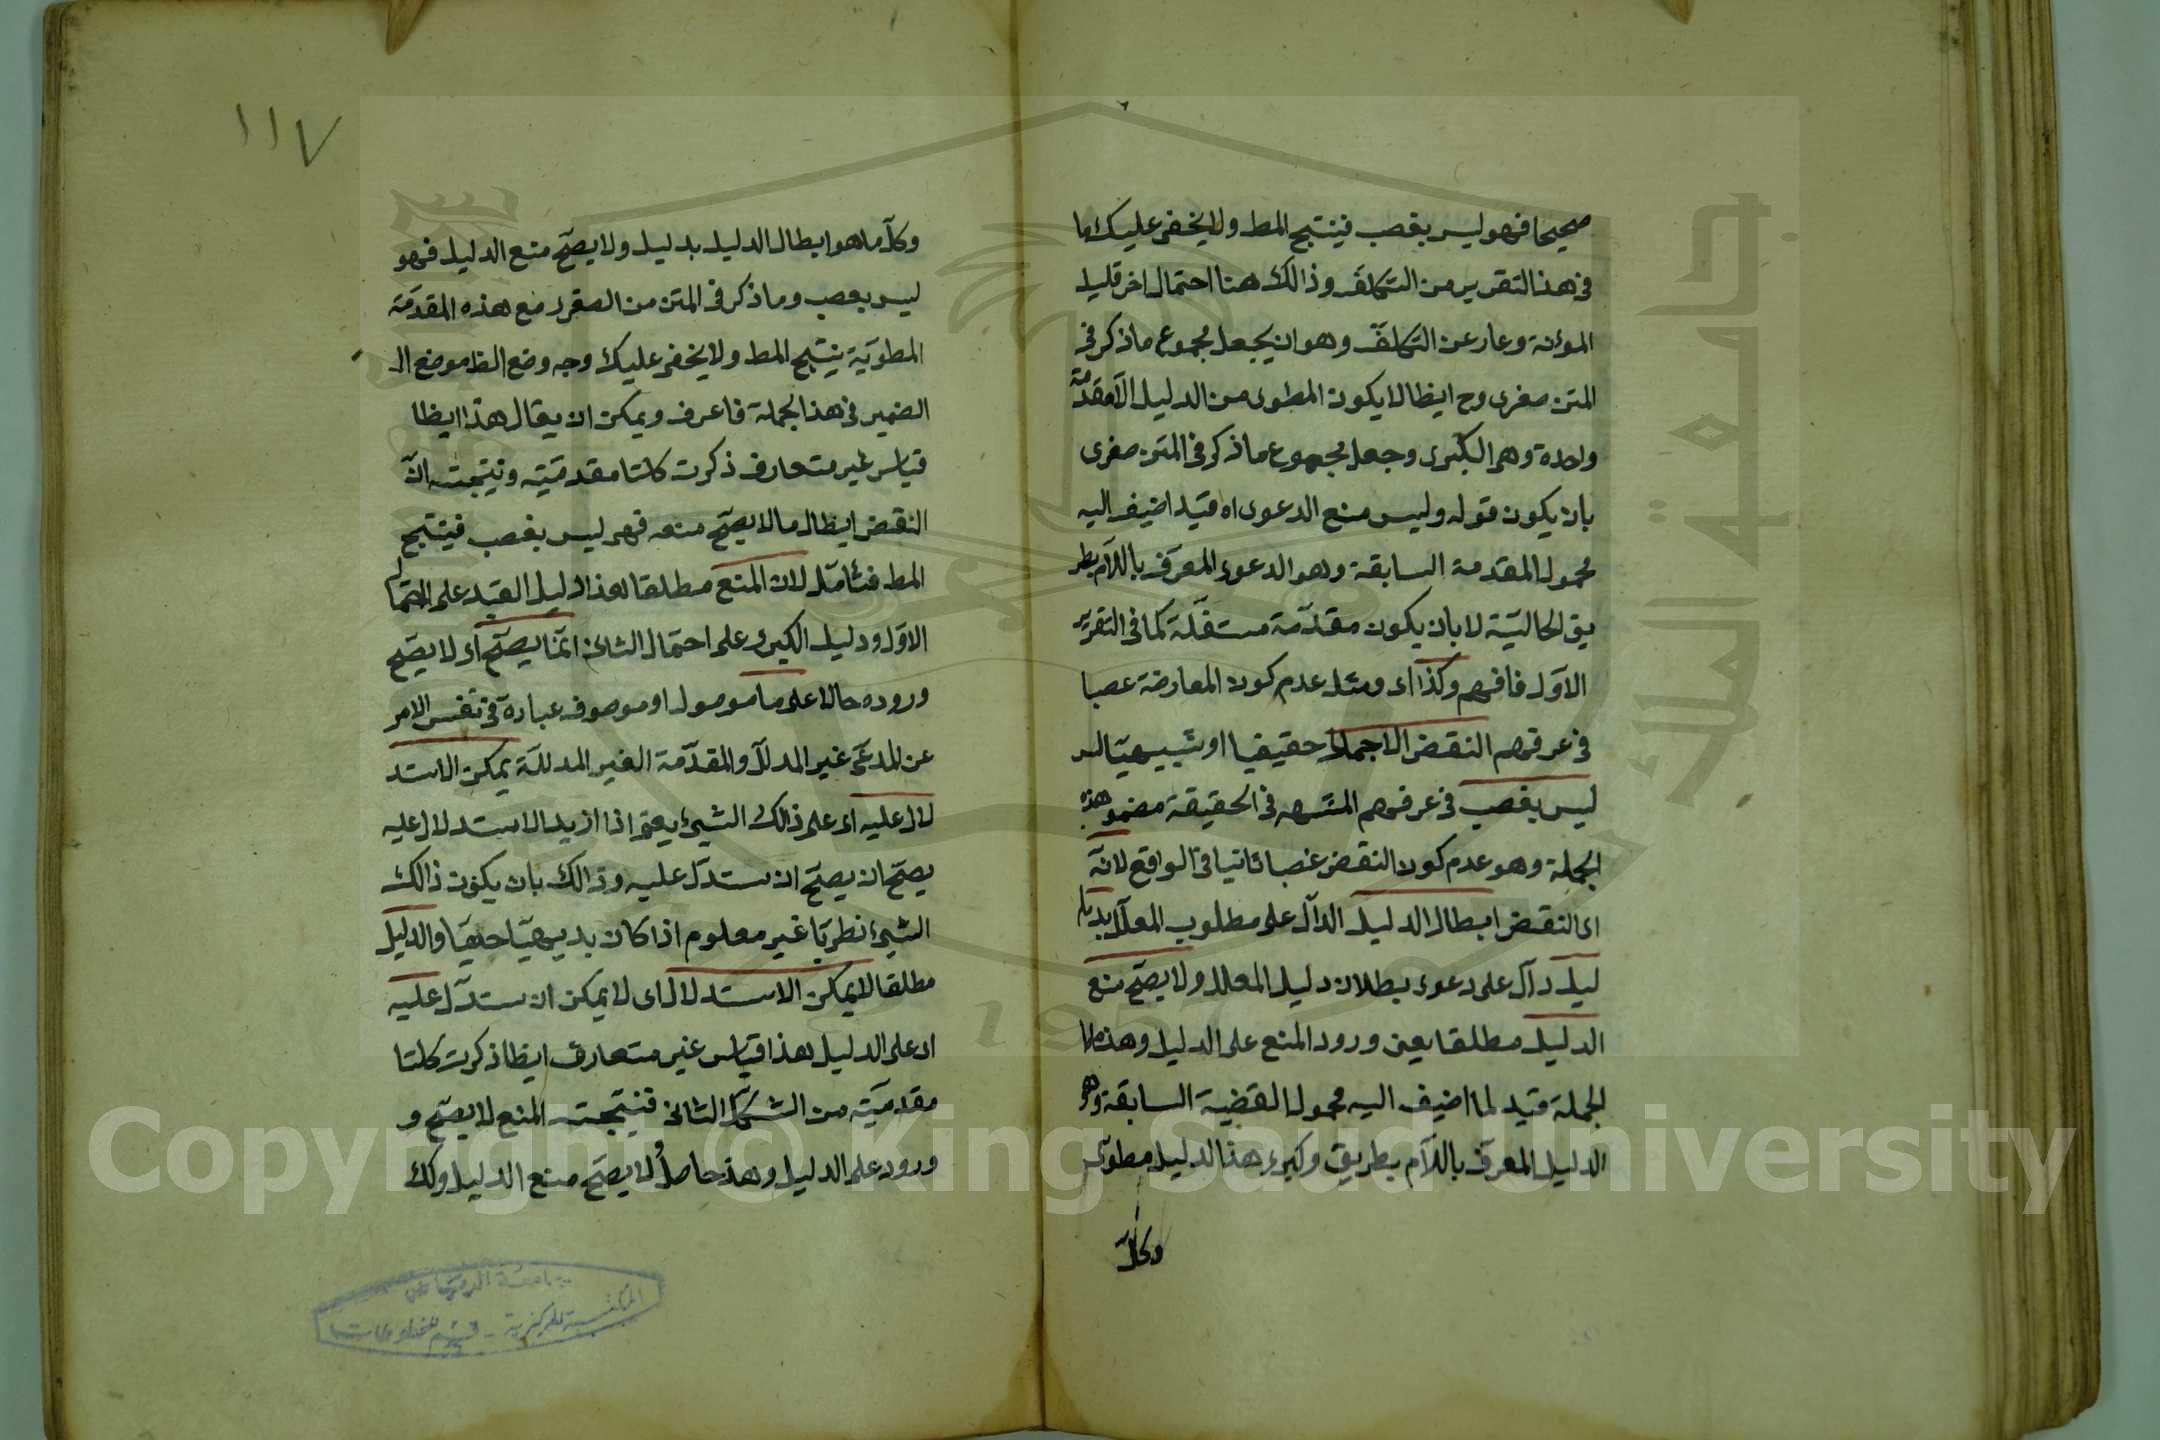 صحيحا فهو ليس بغصب فينتج المط ولا يخفى عليك ما
فى هذا التقرير من التكلف وذالك هنا احتمال اخر قليل
المؤنة وعار عن التكلف وهو ان يجعل مجموع ما ذكر فى
المتن صغرى وح ايظا لا يكون المطوى من الدليل الا مقدمة
واحدة وهى الكبرى وجعل مجموع ما ذكر فى المتن صغرى
بان يكون قوله وليس منع الدعوى اه قيد اضيف اليه
محمول المقدمة السابقة وهو الدعوى المعرف باللام بطر
يق الحالية لا بان يكون مقدمة مستقلة كما فى التقرير
الاول فافهم وكذا اى ومثل عدم كون المعارضة عصبا
فى عرفهم النقض الاجمالى حقيقيا او شبيهيا ليس
ليس بغصب فى عرفهم المشهه فى الحقيقة مضمون هذه
الجملة وهو عدم كون النقض غصبا ثانيا فى الواقع لانه
اى النقض ابطال الدليل الدال على مطلوب المعلل بدليل
ليل دال على دعوى بطلان دليل المعلل ولا يصح منع
الدليل مطلقا يعنى ورود المنع على الدليل وهذه
الجملة قيد لما اضيف اليه محمول القضية السابقة وهو
الدليل المعرف باللام بطريق وكبرى هذا الدليل مطوى
وكل
١١٧
وكل ما هو ابطال الدليل بدليل ولا يصح منع الدليل فهو
ليس بعصب وما ذكر فى المتن من الصغرى مع هذه المقدمة
المطوية ينتج المط ولا يخفى عليك وجه وضع الظ موضع ال
الضمير فى هذا الجملة فاعرف ويمكن ان يقال هذا ايظا
قياس غير متعارف ذكرت كلتا مقدمتيه ونتيجته ان
النقض ابطال ما لا يصح منعه فهو ليس بغصب فينتج
المط فتأمل لان المنع مطلقا هذا دليل القيد على احتمال
الاول ودليل الكبرى على احتمال الثانى انما يصح اى لا يصح
وروده حالا على ما موصول او موصوف عبارة فى نفس الامر
عن المدعى غير المدلل والمقدمة الغير المدللة يمكن الاستد
لال عليه اى على ذالك الشئ يعنى اذا اريد الاستدلال عليه
يصح ان يصح ان يستدل عليه وذالك بان يكون ذالك
الشئ نظريا غير معلوم اذا كان بديهيا والدليل
مطلقا لا يمكن الاستدلال اى لا يمكن ان يستدل عليه
اى على الدليل هذا قياس غير متعارف ايظا ذكرت كلتا
مقدمتيه من الشكل الثانى فنتيجته المنع لا يصح و
ورود على الدليل وهذ حاصل لا يصح منع الدليل ولك
جامعة الرياض
المكتبة المركزية - قسم المخطوطات
جامعة الملك سعود
1957
Copyright © King Saud University